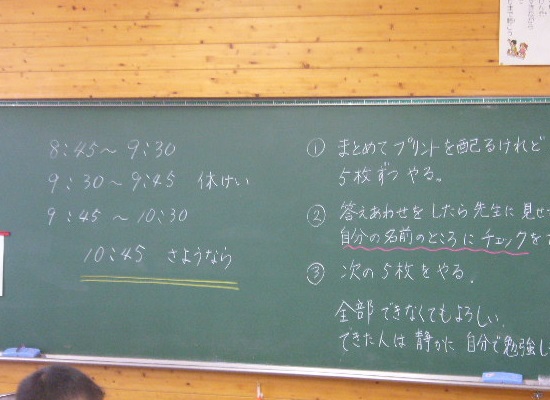 8:45～9:30
9:30～9:45 休けい
9:45～10:30
10:45 さようなら
① まとめてプリントを配るけれど
5枚ずつやる。
② 答えあわせをしたら先生に見せ
自分の名前のところにチェックを
③ 次の5枚をやる。
全部できなくてもよろしい。
できた人は静かに自分で勉強し